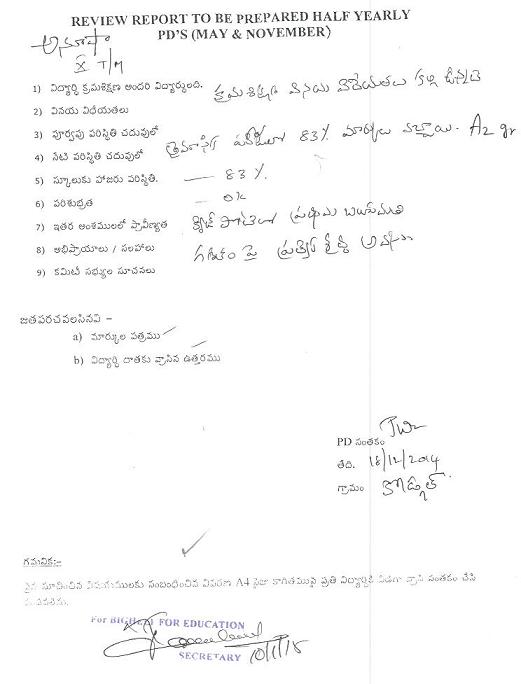 REVIEW REPORT TO BE PREPARED HALF YEARLY
PD'S (MAY & NOVEMBER)
అనూషా
X T/M
1) విద్యార్థి క్రమశిక్షణ అందరి విద్యార్థులది. క్రమశిక్షణ వినయ విధేయతలు కల్గి ఉన్నది
2) వినయ విధేయతలు
3) పూర్వపు పరిస్థితి చదువులో
త్రైమాసిక పరీక్షలో 83% మార్కులు వచ్చాయి. A2 gr
4) నేటి పరిస్థితి చదువులో
5) స్కూలుకు హాజరు పరిస్థితి. — 83 %.
6) పరిశుభ్రత — ok
7) ఇతర అంశములలో ప్రావీణ్యత క్విజ్ పోటీలో ప్రథమ బహుమతి
8) అభిప్రాయాలు / సలహాలు గణితం పై ప్రత్యేక శ్రద్ధ అవసరం
9) కమిటీ సభ్యుల సూచనలు
జతపరచవలసినవి –
a) మార్కుల పత్రము
b) విద్యార్థి దాతకు వ్రాసిన ఉత్తరము
PD సంతకం
తేది. 18/12/2014
గ్రామం
గమనిక:-
పైన సూచించిన విషయములకు సంబంధించిన వివరణ A4 సైజు కాగితముపై ప్రతి విద్యార్థికి విడిగా వ్రాసి సంతకం చేసి
For BIGHELP FOR EDUCATION
SECRETARY 10/1/15